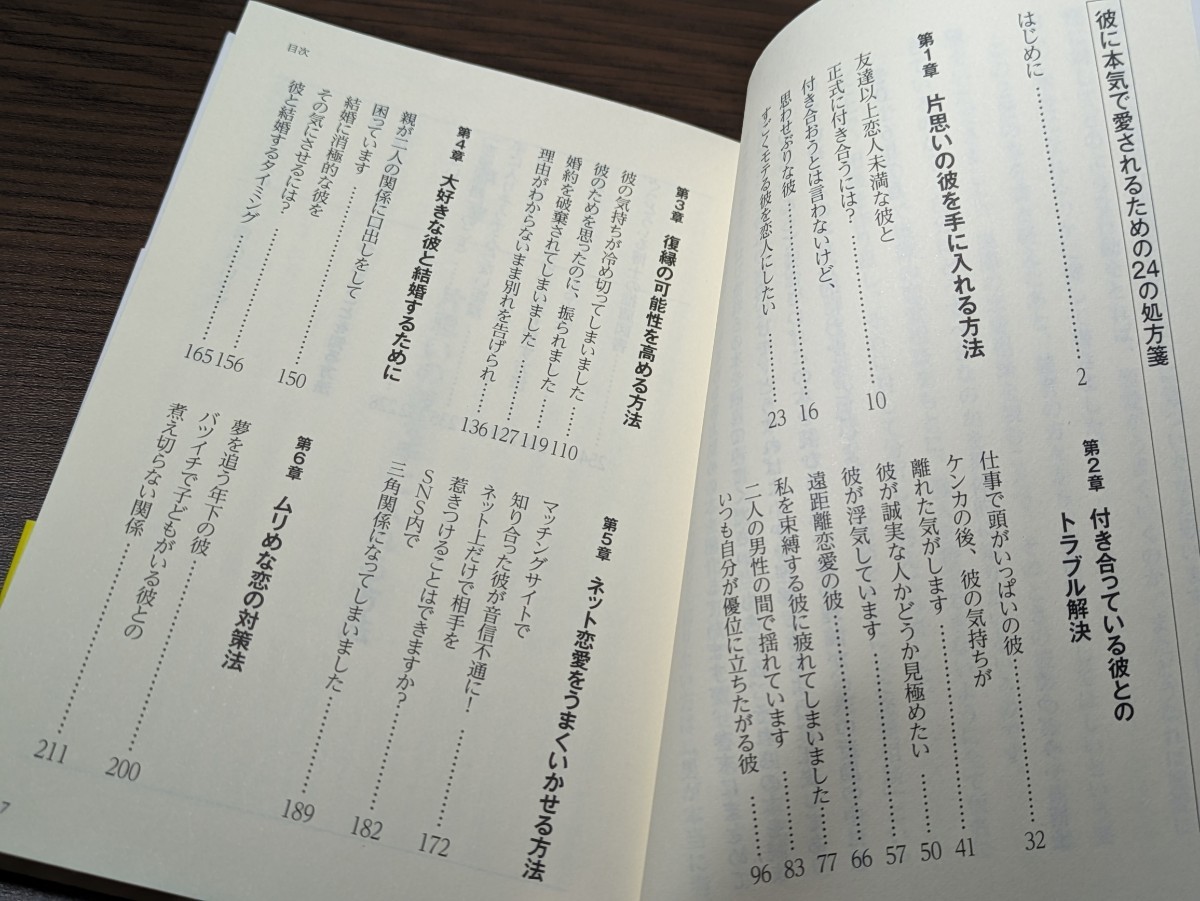 彼に本気で愛されるための24の処方箋
はじめに……………………2
第1章 片思いの彼を手に入れる方法
友達以上恋人未満な彼と
正式に付き合うには?……………10
付き合おうとは言わないけど、
思わせぶりな彼……………16
すごくモテる彼を恋人にしたい………23
第2章 付き合っている彼との
トラブル解決
仕事で頭がいっぱいの彼……………32
ケンカの後、彼の気持ちが
離れた気がします……………41
彼が誠実な人かどうか見極めたい………50
彼が浮気しています……………57
遠距離恋愛の彼……………66
私を束縛する彼に疲れてしまいました……77
二人の男性の間で揺れています………83
いつも自分が優位に立ちたがる彼………96
目次
第3章 復縁の可能性を高める方法
彼の気持ちが冷め切ってしまいました……110
彼のためを思ったのに、振られました……119
婚約を破棄されてしまいました…………127
理由がわからないまま別れを告げられ……136
第4章 大好きな彼と結婚するために
親が二人の関係に口出しをして
困っています……………150
結婚に消極的な彼を
その気にさせるには?……………156
彼と結婚するタイミング……………165
第5章 ネット恋愛をうまくいかせる方法
マッチングサイトで
知り合った彼が音信不通に!……………172
ネット上だけで相手を
惹きつけることはできますか?…………182
SNS内で
三角関係になってしまいました…………189
第6章 ムリめな恋の対策法
夢を追う年下の彼……………200
バツイチで子どもがいる彼との
煮え切らない関係……………211
7